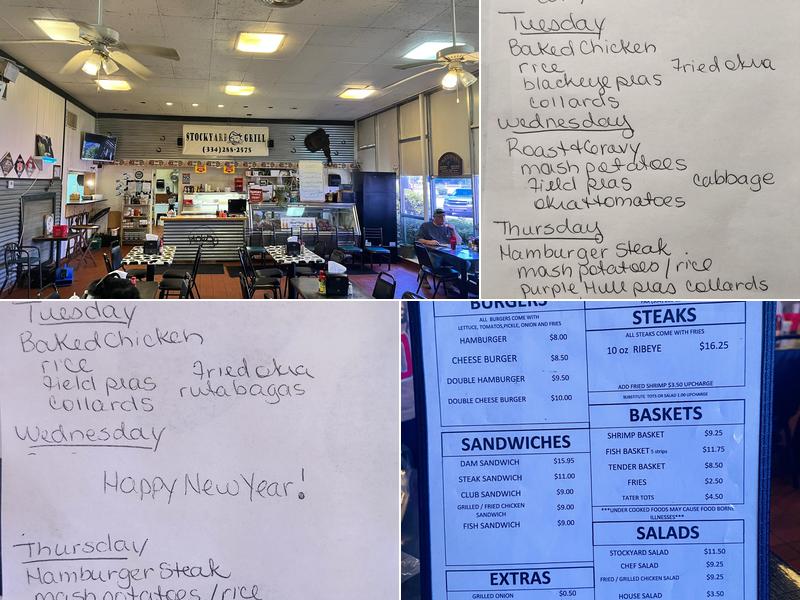 STOCKYARD GRILL
(334)288-2575
Tuesday
Baked Chicken
rice
Fried okra
blackeye peas
collards
Wednesday
Roast & Gravy
mash potatoes
Field peas
Cabbage
okra + tomatoes
Thursday
Hamburger Steak
mash potatoes / rice
purple Hull peas collards
Tuesday
Baked Chicken
rice
Fried okra
Field peas
rutabagas
collards
Wednesday
Happy New Year!
Thursday
Hamburger Steak
mash potatoes / rice
BURGERS
ALL BURGERS COME WITH
LETTUCE, TOMATOS, PICKLE, ONION AND FRIES
HAMBURGER $8.00
CHEESE BURGER $8.50
DOUBLE HAMBURGER $9.50
DOUBLE CHEESE BURGER $10.00
SANDWICHES
DAM SANDWICH $15.95
STEAK SANDWICH $11.00
CLUB SANDWICH $9.00
GRILLED / FRIED CHICKEN
SANDWICH $9.00
FISH SANDWICH $9.00
EXTRAS
GRILLED ONION $0.50
STEAKS
ALL STEAKS COME WITH FRIES
10 oz RIBEYE $16.25
ADD FRIED SHRIMP $3.50 UPCHARGE
SUBSTITUTE TOTS OR SALAD 1.00 UPCHARGE
BASKETS
SHRIMP BASKET $9.25
FISH BASKET 5 strips $11.75
TENDER BASKET $8.50
FRIES $2.50
TATER TOTS $4.50
***UNDER COOKED FOODS MAY CAUSE FOOD BORNE
ILLNESSES***
SALADS
STOCKYARD SALAD $11.50
CHEF SALAD $9.25
FRIED / GRILLED CHICKEN SALAD $9.25
HOUSE SALAD $3.50